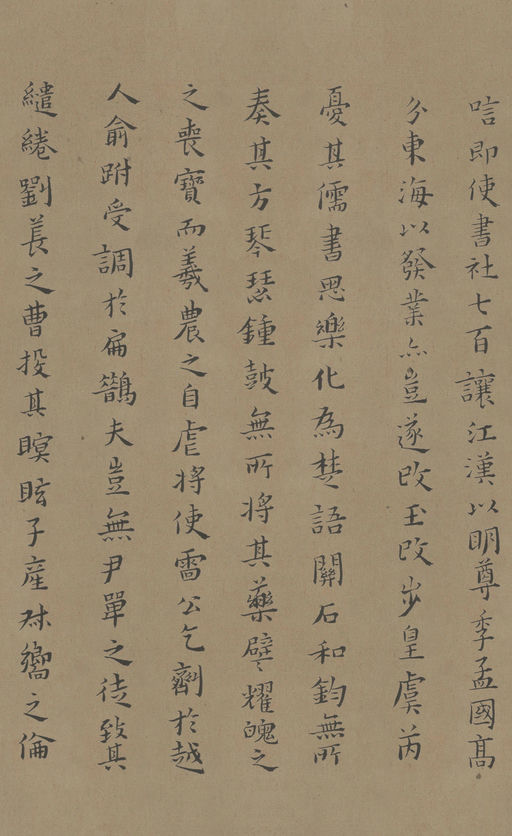 唁即使書社七百讓江漢以明尊季孟國高
分東海以發業亦豈遂改玉改步皇虞芮
憂其儒書思樂化為楚語關石和鈞無所
奏其方琴瑟鍾鼓無所將其藥譬耀魄之
之喪寶而羲農之自虐將使雷公乞劑於越
人俞跗受調於扁鵲夫豈無尹單之徒致其
繾綣劉萇之曹投其瞑眩子產叔嚮之倫